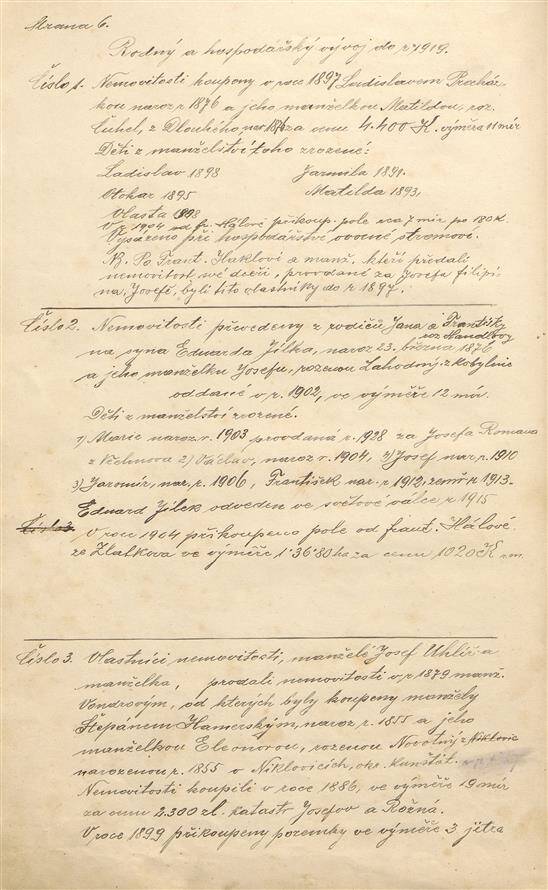 Strana 6.
Rodný a hospodářský vývoj do r. 1919.
Číslo 1. Nemovitosti koupeny v roce 1897 Ladislavem Procház-
kou naroz. r. 1876 a jeho manželkou Matildou, roz.
Čuhel, z Dlouhého, nar. za cenu 4.400 K. výměra 11 měr
Děti z manželství toho zrozené:
Ladislav 1898 Jarmila 1891.
Otokar 1895 Matilda 1893,
Vlasta
V r. 1904 od fr. Hálové přikoup. pole cca 7 mír po 180 K.
Vysázeno při hospodářství ovocné stromoví.
Frant. Haklovi a manž. kteří předali
nemovitost své dceři, provdané za Josefa Filipi-
na, Josefě, byli tito vlastníky do r. 1897.
Číslo 2. Nemovitosti převedeny z rodičů Jana a Františky
roz. Handlovy
na syna Eduarda Jílka, naroz. 23. března 1876
a jeho manželku Josefu, rozenou Zahodný, z Kobylnic
oddané v r. 1902, ve výměře 12 měr.
Děti z manželství zrozené.
1) Marie naroz. r. 1903 provdaná r. 1928 za Josefa Romana
z Věchnova 2) Václav, naroz. r. 1904, 4) Josef nar. r. 1910
3) Jaromír, nar. r. 1906, František nar. r. 1912, zemř. r. 1913.
Eduard Jílek odveden ve světové válce, r. 1915
Číslo 3.
V roce 1904 přikoupeno pole od frant. Hálové
ze Zlatkova ve výměře 1·36·80 ha za cenu 1020 K
Číslo 3. Vlastníci nemovitosti, manželé Josef Uhlíř a
manželka, prodali nemovitosti v r. 1879 manž.
Vondrovým, od kterých byly koupeny manžely
Štěpánem Hamerským, naroz. r. 1855 a jeho
manželkou Eleonorou, rozenou Novotný z Niklovic
narozenou r. 1855 v Niklovicích, okr. Kunštát.
Nemovitosti koupili v roce 1886, ve výměře 19 měr
za cenu 2.300 zl. katastr Josefov a Rožná.
V roce 1899 přikoupeny pozemky ve výměře 3 jitra